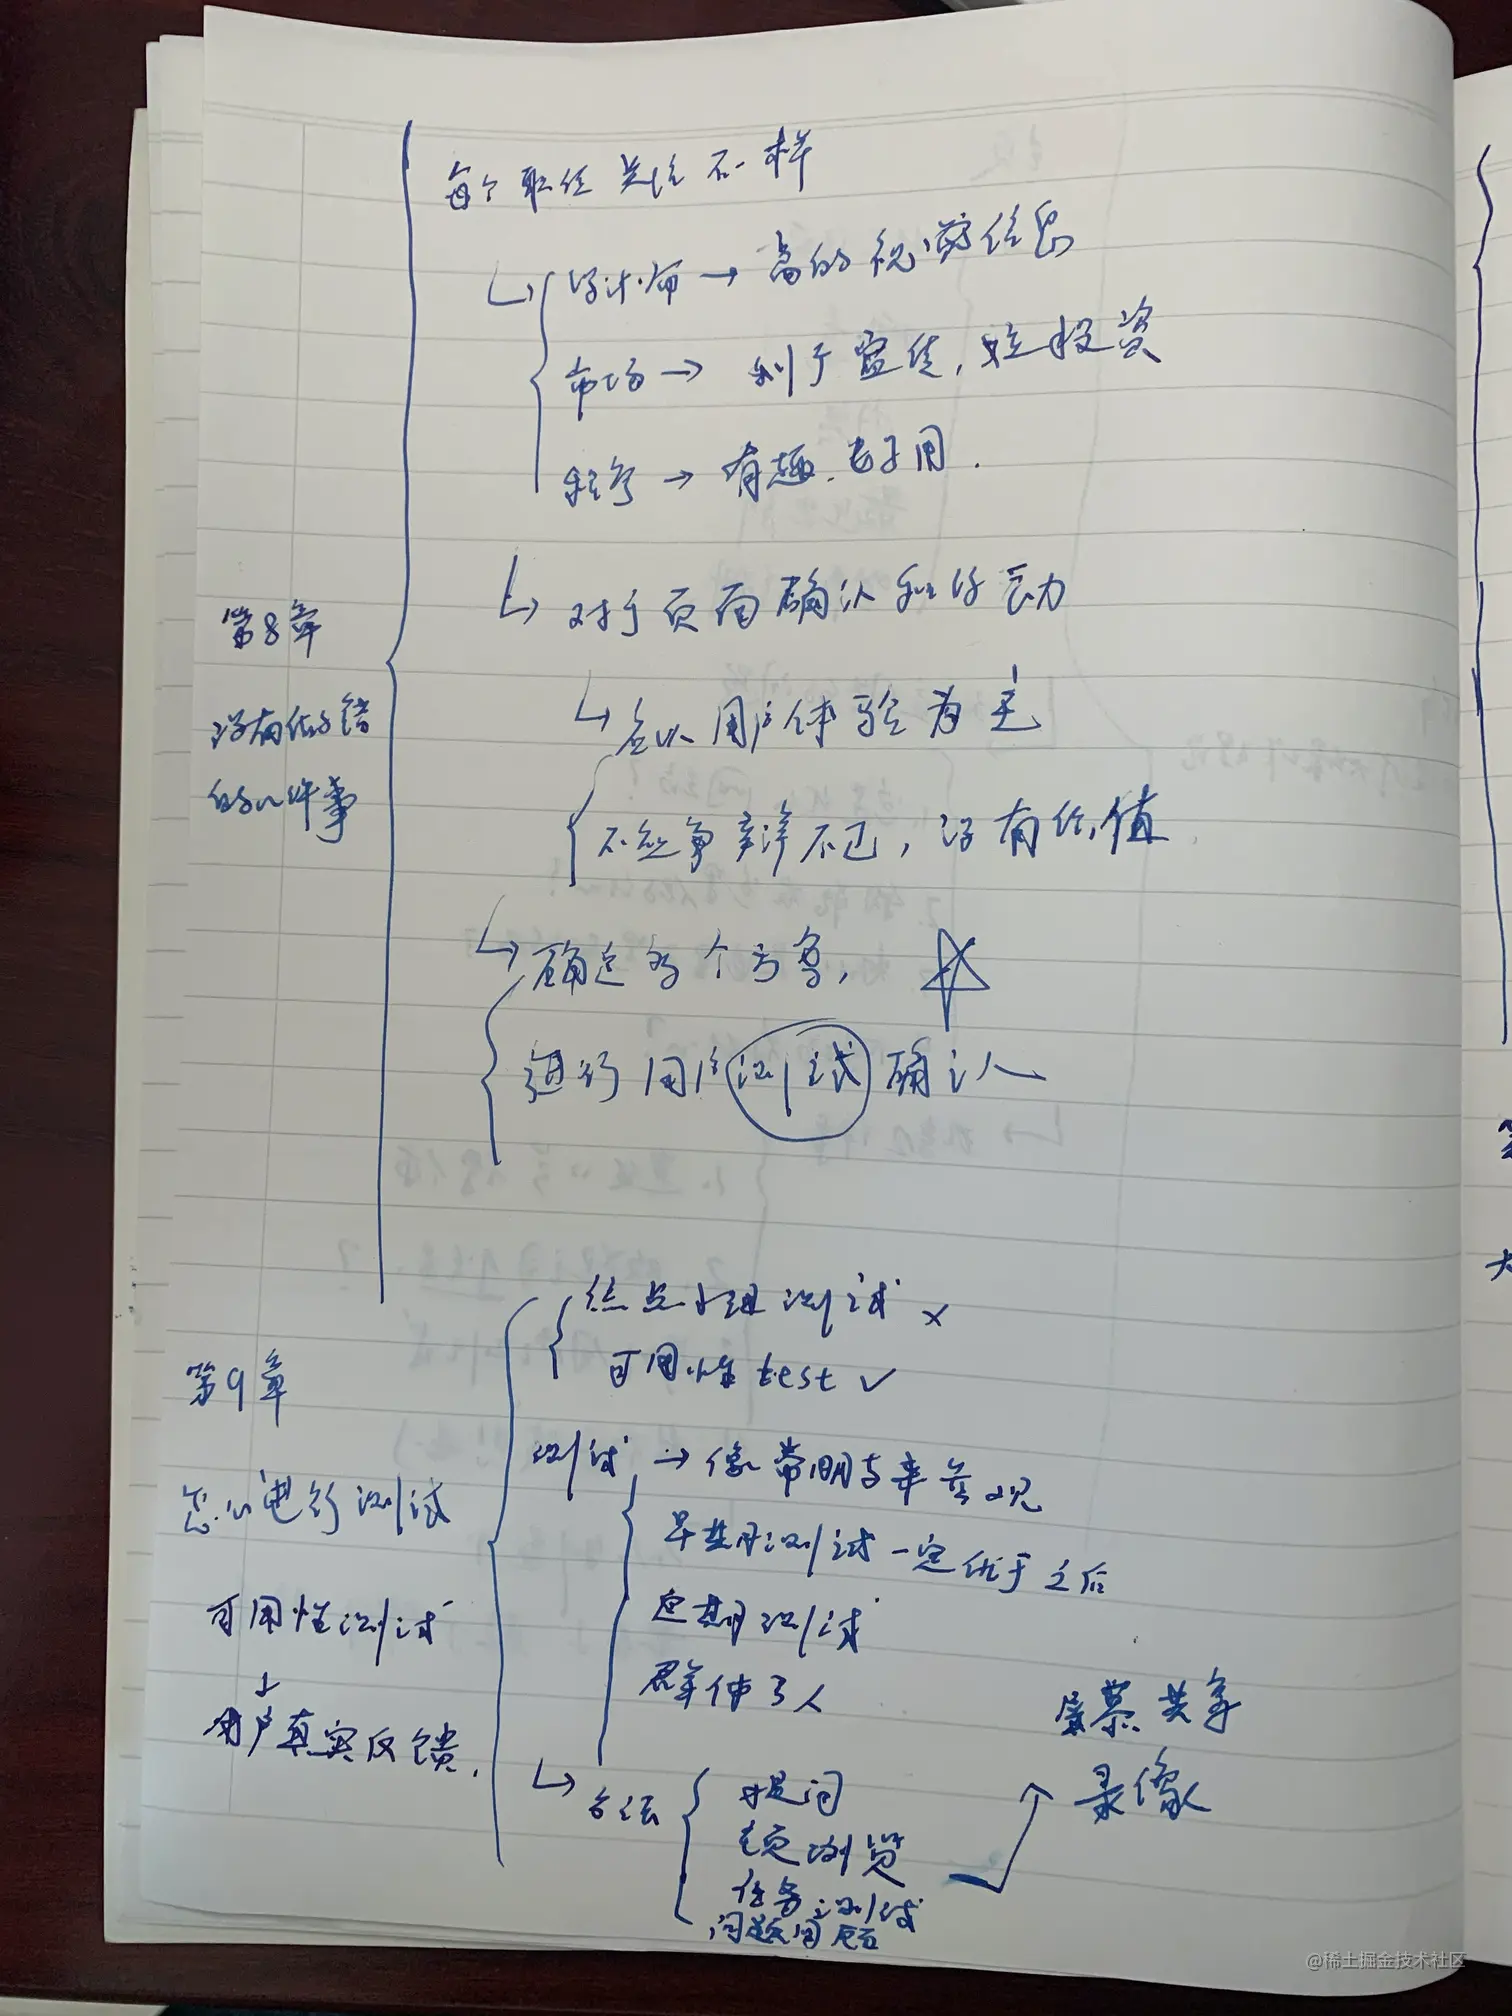 每个职位关注不一样
设计师 → 高的视觉信息
市场 → 利于宣传,拉投资
程序 → 有趣、好用.
对于页面确认和行动
应以用户体验为主
不必争辩不已,没有价值
确定多个方案,
进行用户测试确认
第8章
没有 错
的几件事
焦点小组测试 ×
可用性test ✓
第9章
测试 → 像带朋友来参观
怎么进行测试
早期测试一定优于之后
可用性测试
定期测试
↓
用户真实反馈.
屏幕共享
方法
提问
录像
主页浏览
任务测试
问题回顾
@稀土掘金技术社区